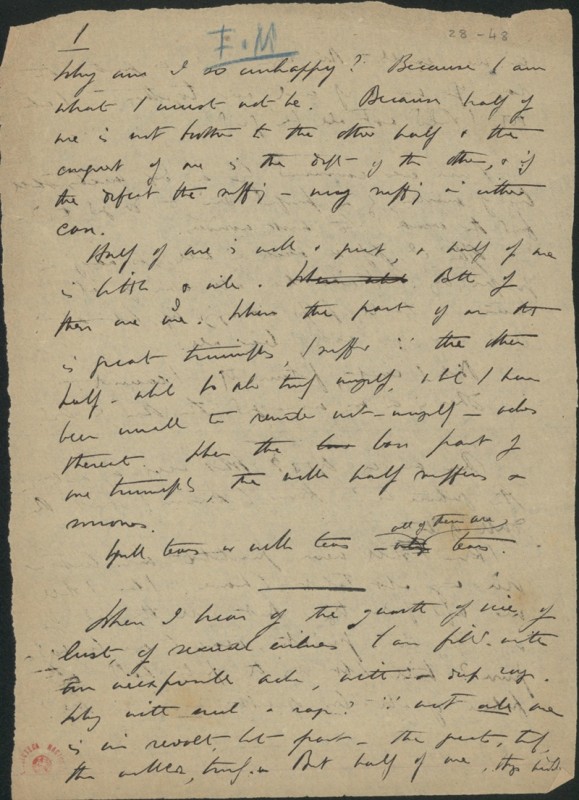 1
F. M
28-43
Why am I so unhappy? Because I am
what I must not be. Because half of
me is not brother to the other half & the
conquest of one is the deft of the other, & if
the defeat the suffg — my suffg in either
case.
Half of me is noble & great, & half of me
is little & vile. Both of
them are me. When the part of me tt
is great triumphs, I suffer ∵ the other
half — wh. is also truly myself, wh. I have
been unable to not-myself — aches
thereat. When the base part of
me triumphs, the noble half suffers &
mourns.
tears or noble tears — all of them are tears.
When I hear of the growth of vice, of
lust, of sexual I am filld. with
an ache, with a deep rage.
Why with such a rage? ∵ not one
is in revolt, but part — the great, the
the noble, But half of me,